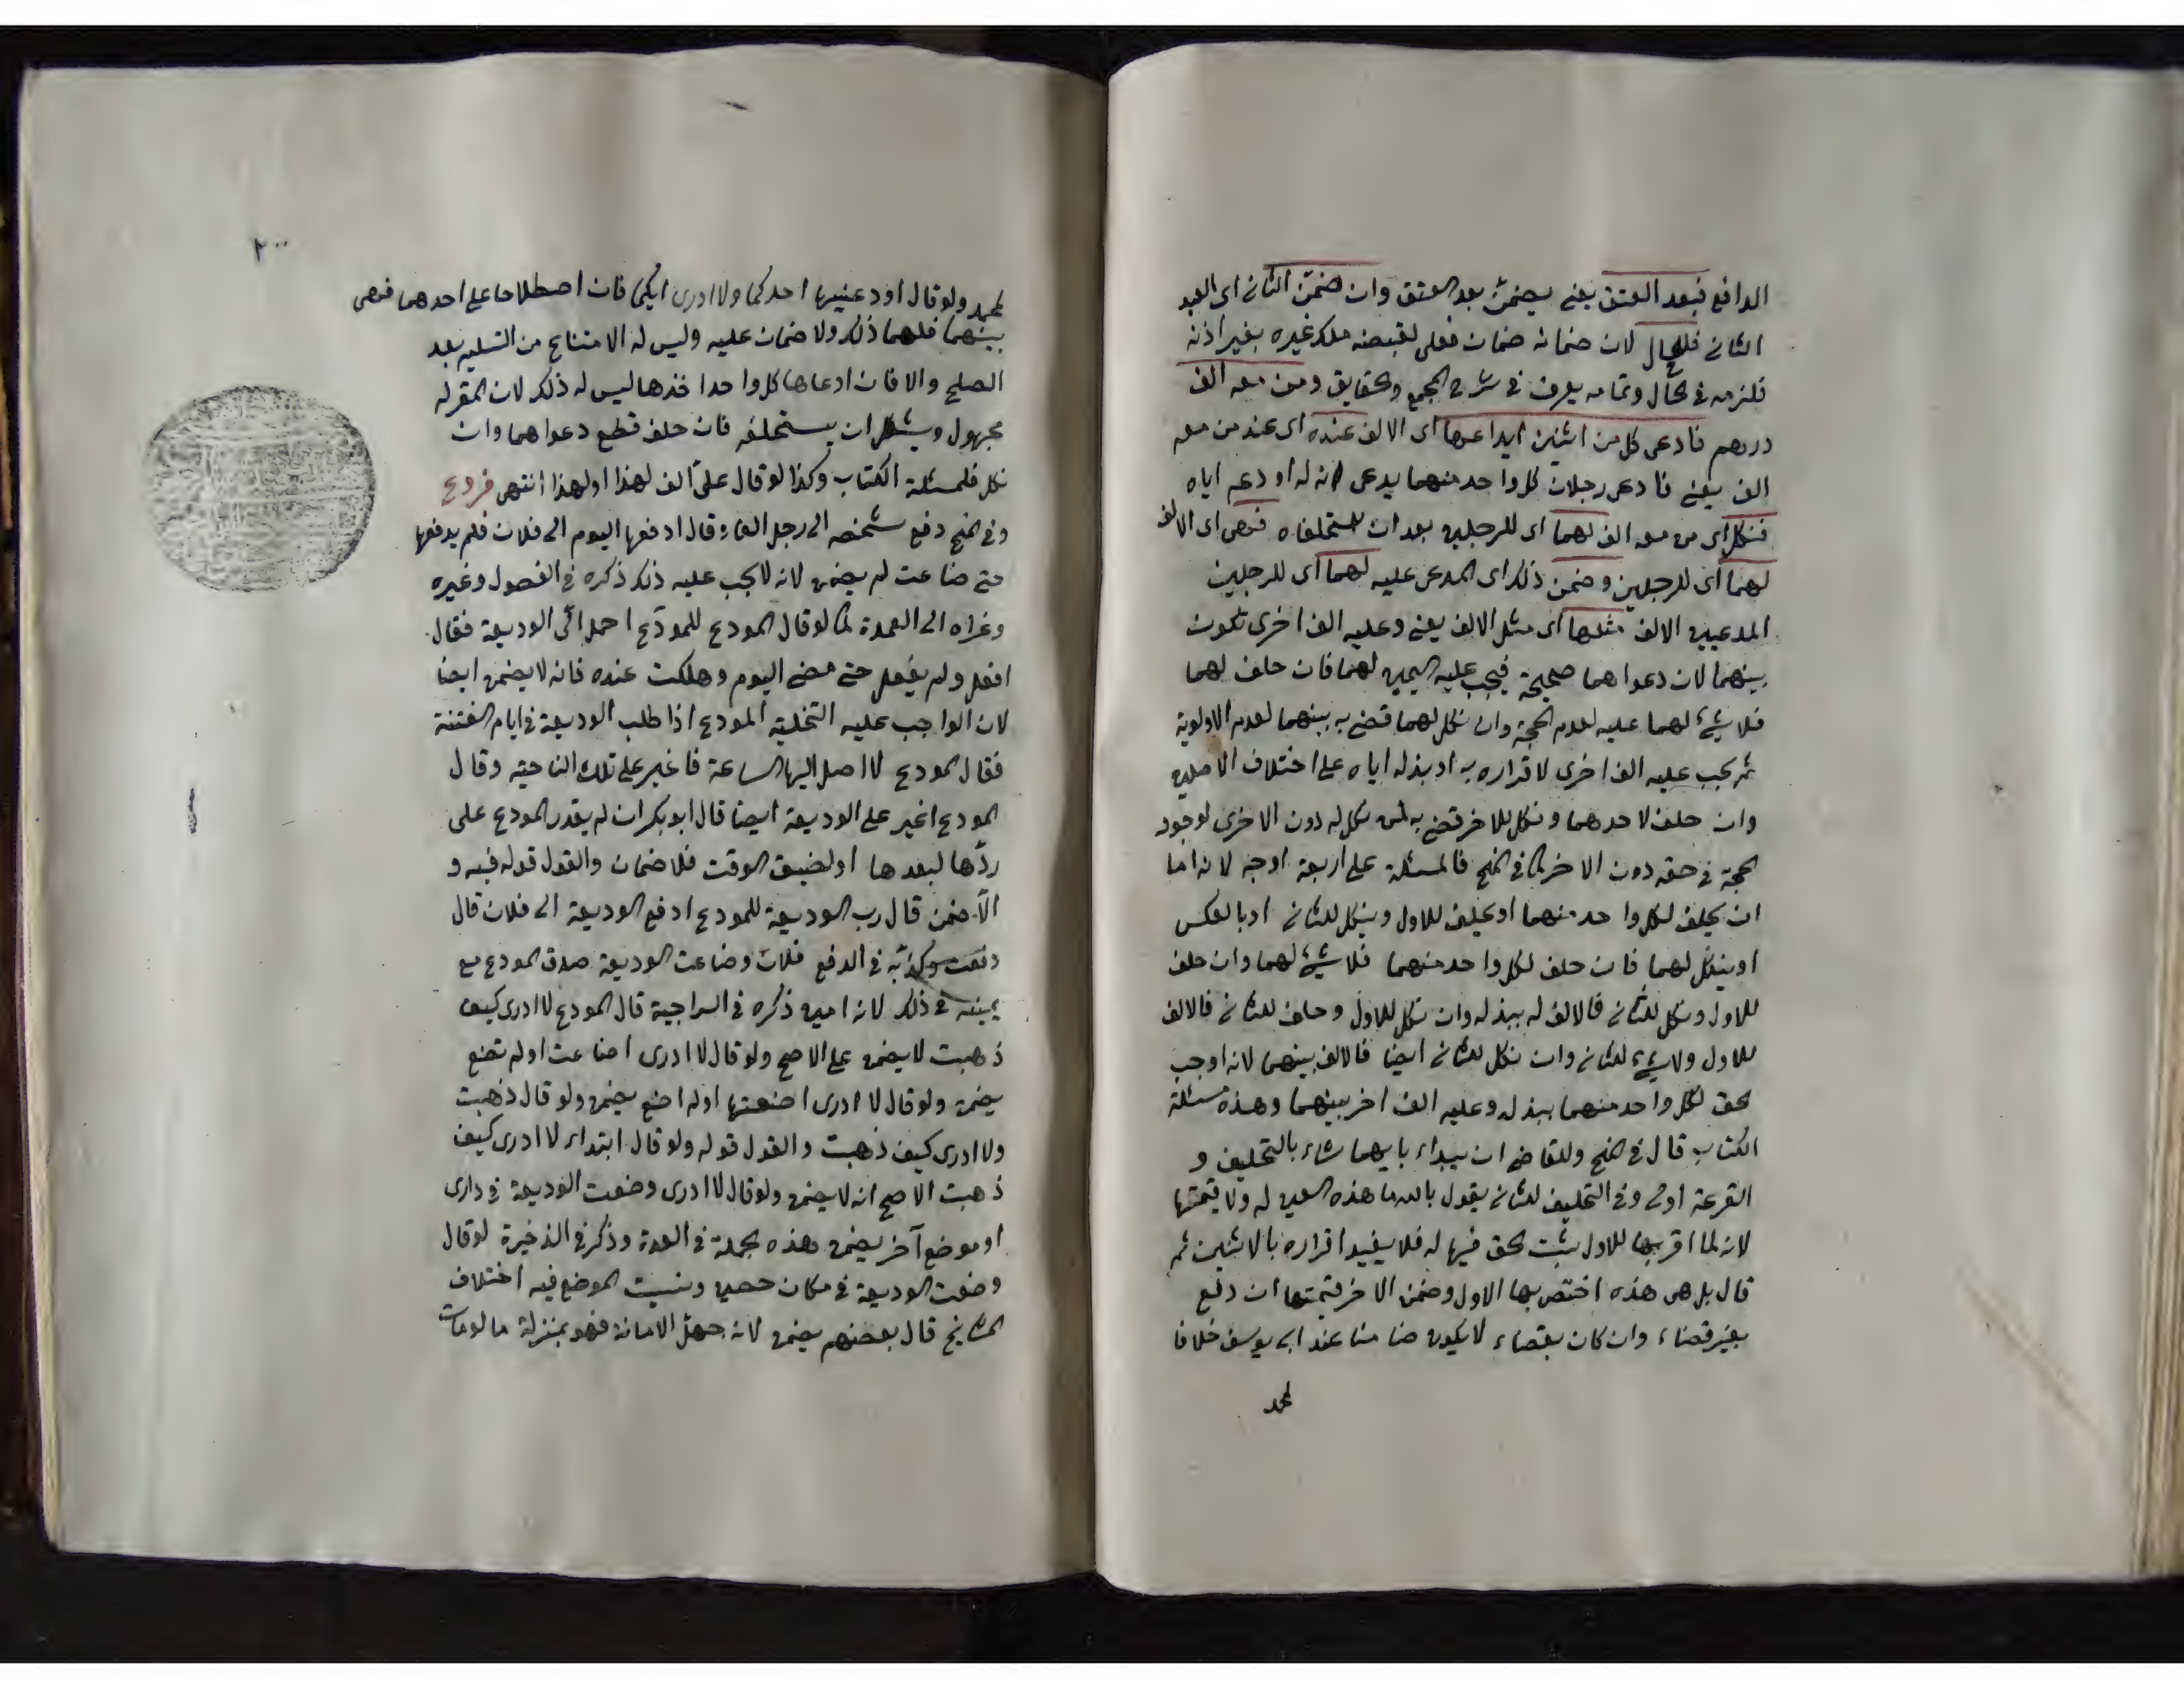 الدافع فبعد العتق يعنى يضمن بعد العتق وان ضمن الثانى اى العبد
الثانى فللحال لان ضمانه ضمان فعلى لقبضه ملك غيره بغير اذنه
فلزمه فى الحال وتمامه يعرف فى شرح المجمع والحقايق ومن معه الف
درهم فادعى كل من اثنين ايداعها اى الالف عنده اى عند من معه
الف يعنى فادعى رجلان كل واحد منهما يدعى انه له اودعه اياه
فنكل اى من معه الف لهما اى للرجلين بعد ان استحلفاه فهى اى الالف
لهما اى للرجلين وضمن ذلك اى المدعى عليه لهما اى للرجلين
المدعيين الالف مثلها اى مثل الالف يعنى وعليه الف اخرى تكون
بينهما لان دعواهما صحيحة فيجب عليه اليمين لهما فان حلف لهما
فلا شئ لهما عليه لعدم الحجة وان نكل لهما قضى به بينهما لعدم الاولوية
ثم يجب عليه الف اخرى لاقراره به او بذله اياه على اختلاف الاصلين
وان حلف لاحدهما ونكل للاخر قضى به لمن نكل له دون الاخرى لوجود
الحجة فى حقه دون الاخر كما فى المنح فالمسئلة على اربعة اوجه لانه اما
ان يحلف لكل واحد منهما او يحلف للاول وينكل للثانى او بالعكس
او ينكل لهما فان حلف لكل واحد منهما فلا شئ لهما وان حلف
للاول ونكل للثانى فالالف له ببذله وان نكل للاول وحلف للثانى فالالف
للاول ولا شئ للثانى وان نكل للثانى ايضا فالالف بينهما لانه اوجب
الحق لكل واحد منهما ببذله وعليه الف اخر بينهما وهذه مسئلة
الكتاب قال فى المنح وللقاضى ان يبداء بايهما شاء بالتحليف و
القرعة اولى وفى التحليف للثانى يقول بالله ما هذه العين له ولا قيمتها
لانه لما اقر بها للاول ثبت الحق فيها له فلا يفيد اقراره بالاثنين ثم
قال بل هى هذه اختص بها الاول وضمن الاخر قيمتها ان دفع
بغير قضاء وان كان بقضاء لا يكون ضامنا عند ابى يوسف خلافا
لمحمد
٢٠٠
لمحمد ولو قال اودعنيها احدكما ولا ادرى ايكما فان اصطلاحا على احدهما فهى
بينهما فلهما ذلك ولا ضمان عليه وليس له الامتناع من التسليم بعد
الصلح والا فان ادعاها كل واحد اخذها ليس له ذلك لان المقر له
مجهول ولكل ان يستحلفه فان حلف قطع دعواهما وان
نكل فلمسئلة الكتاب وكذا لو قال علىّ الف لهذا او لهذا انتهى فروع
وفى المنح دفع شخص الى رجل الفا وقال ادفعها اليوم الى فلان فلم يدفعها
حتى ضاعت لم يضمن لانه لا يجب عليه ذلك ذكره فى الفصول وغيره
وعزاه الى العمدة كما لو قال المودع للمودَع احمل الىّ الوديعة فقال
افعل ولم يفعل حتى مضى اليوم وهلكت عنده فانه لا يضمن ايضا
لان الواجب عليه التخلية المودع اذا طلب الوديعة فى ايام الفتنة
فقال المودع لا اصل اليها الساعة فاغير على تلك الناحية وقال
المودع اغير على الوديعة ايضا قال ابو بكر ان لم يقدر المودع على
ردّها لبعدها او لضيق الوقت فلا ضمان والقول قوله فيه و
الّا ضمن قال رب الوديعة للمودع ادفع الوديعة الى فلان قال
دفعت وكذّبه فى الدفع فلان وضاعت الوديعة صدق المودع مع
يمينه فى ذلك لانه امين ذكره فى السراجية قال المودع لا ادرى كيف
ذهبت لا يضمن على الاصح ولو قال لا ادرى اضاعت اولم تضع
يضمن ولو قال لا ادرى اضعتها اولم اضع يضمن ولو قال ذهبت
ولا ادرى كيف ذهبت والقول قوله ولو قال ابتداء لا ادرى كيف
ذهبت الاصح انه لا يضمن ولو قال لا ادرى وضعت الوديعة فى دارى
او موضع آخر يضمن وهذه الجملة فى العدة وذكر فى الذخيرة لو قال
وضعت الوديعة فى مكان حصين ونسيت الموضع فيه اختلاف
المشايخ قال بعضهم يضمن لانه جهل الامانة فهو بمنزلة ما لو مات